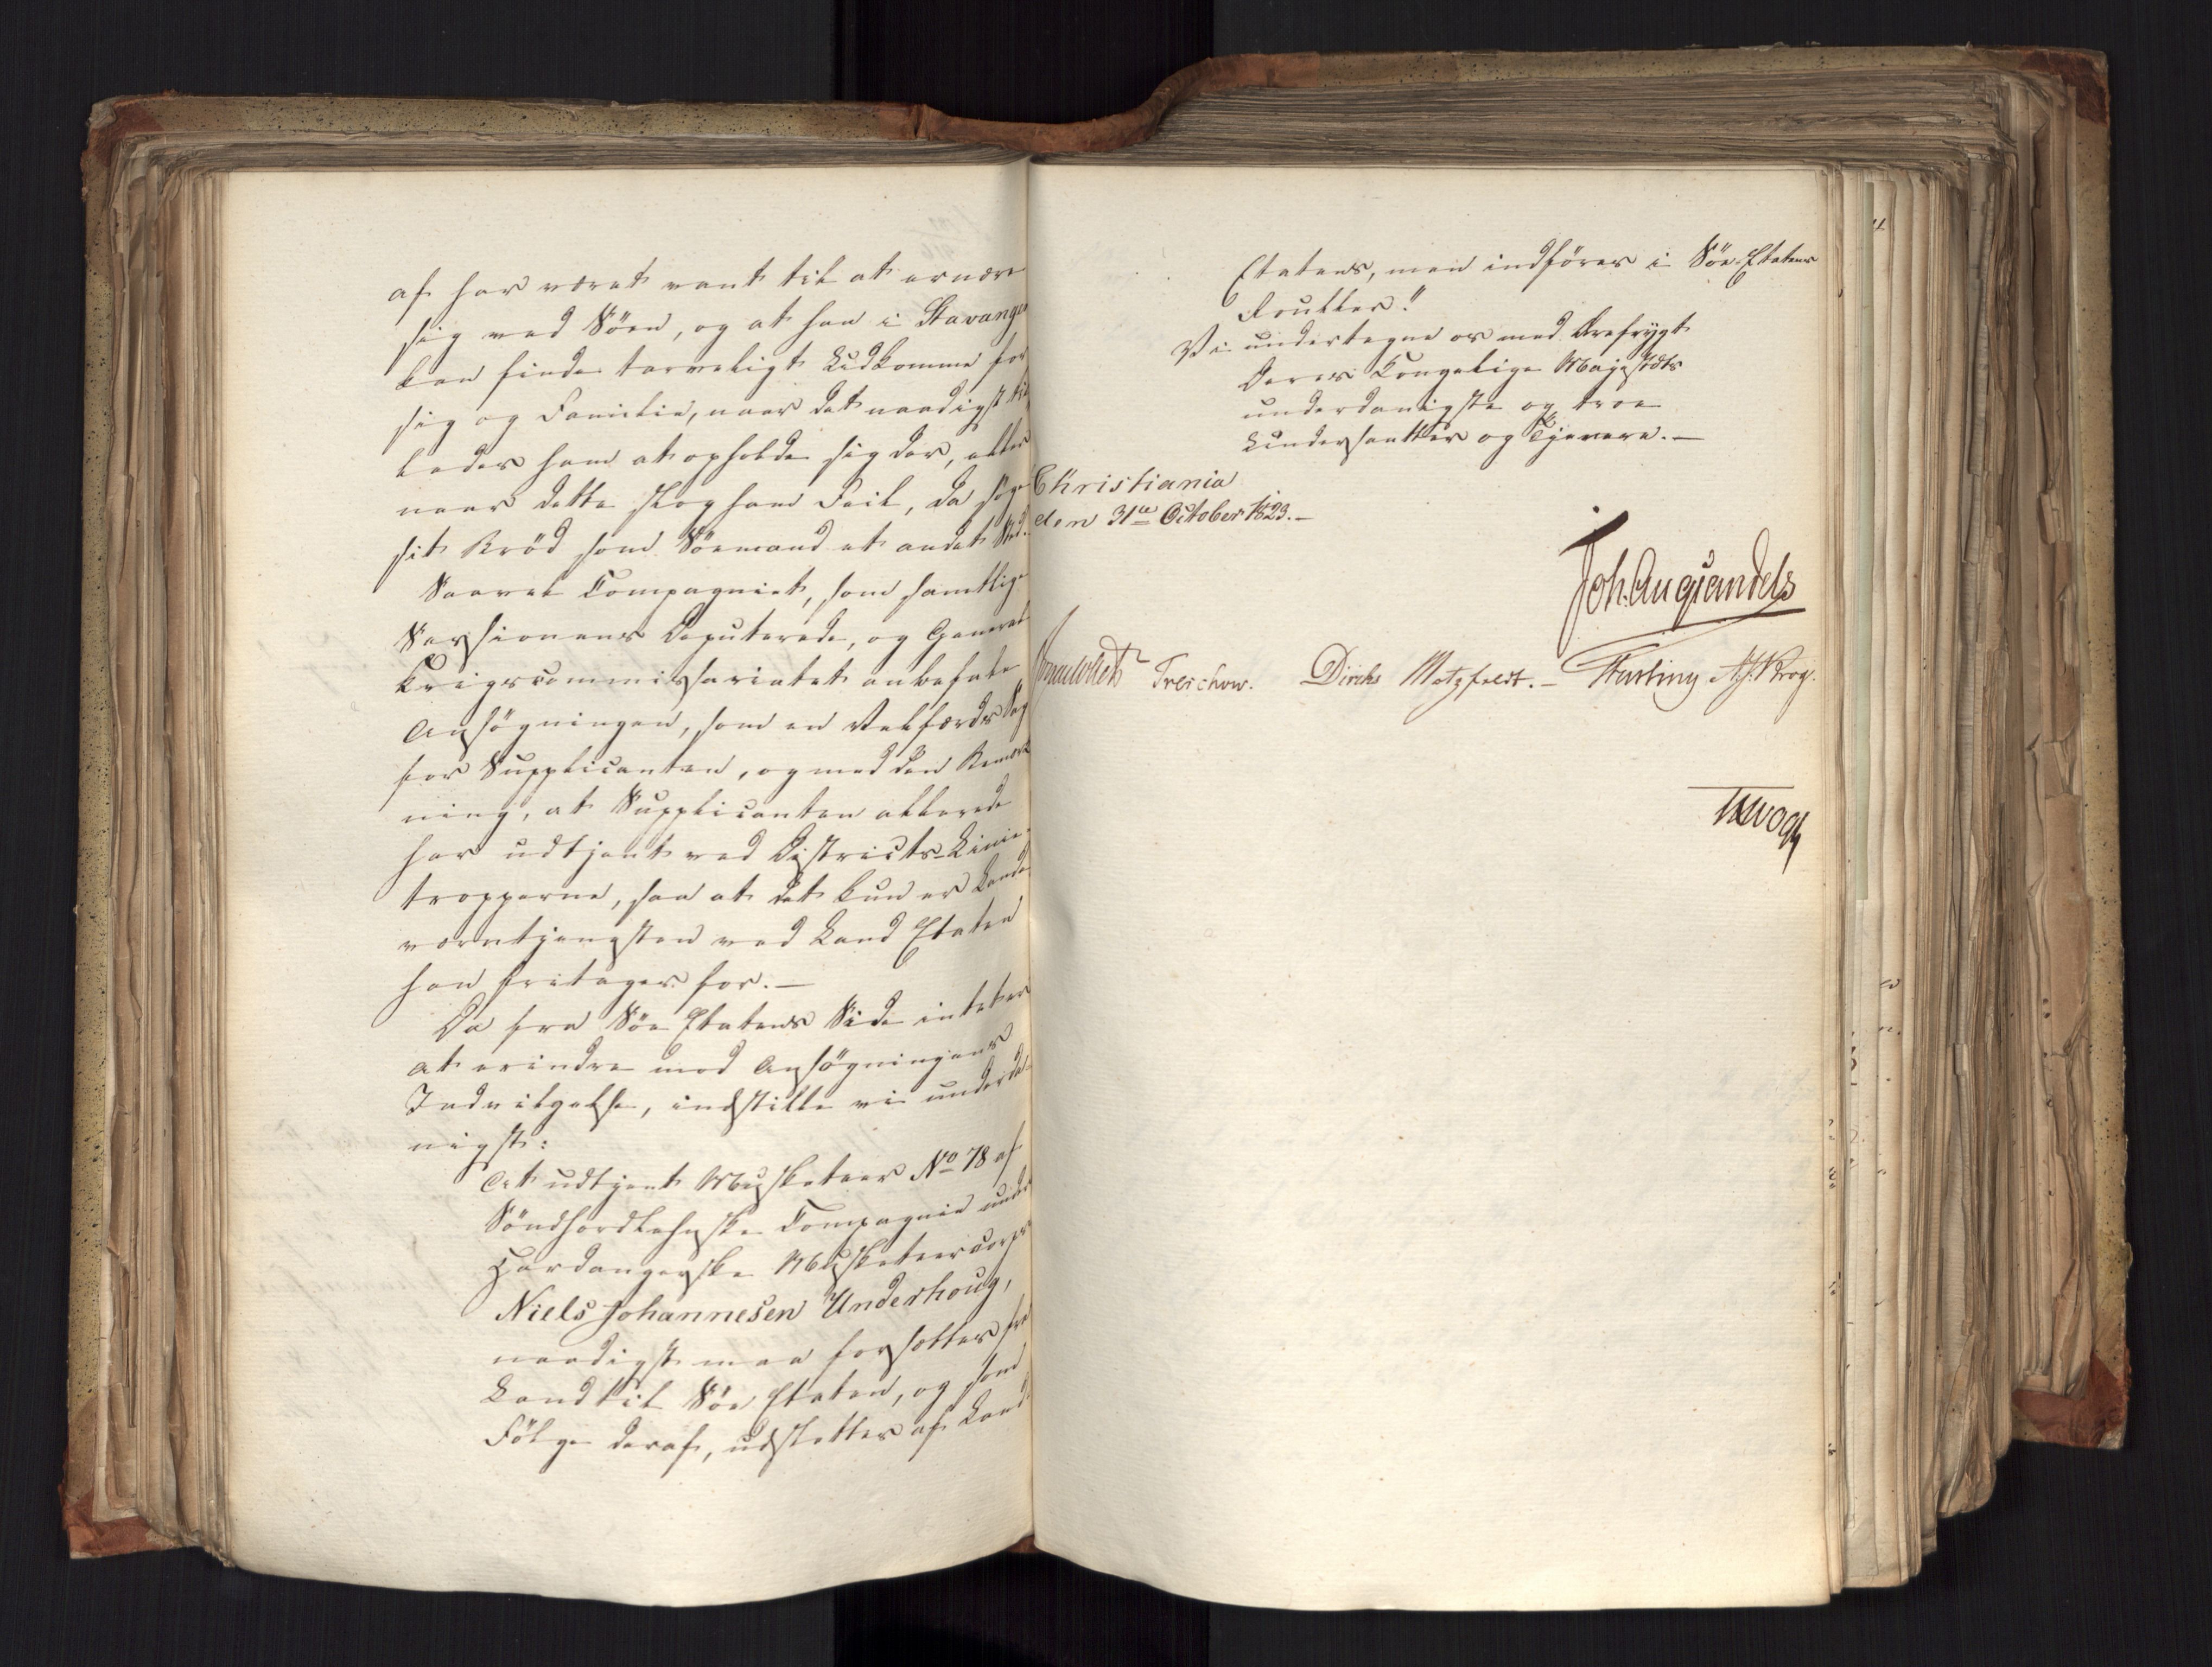 af har været vant til at ernære
sig ved Söen, og at han i Stavanger
kan finde tarveligt Udkomme for
sig og Familie, naar det naadigst til
lades ham at opholde sig der, eller
naar dette slog ham Feil, da söge
sit Bröd som Söemand et andet Sted.
Saavel Compagniet, som samtlige
Sessionens Deputerede, og General
Krigscommissariatet anbefale
Ansögningen, som en Velfærds Sag
for Supplicanten, og med den Bemærk
ning, at Supplicanten allerede
har udtjent ved Districts-Linie-
tropperne, saa at det kun er Lande
værntjenesten ved Land Etaten
han fritages for.—
Da fra Söe Etatens Side intet er
at erindre mod Ansögningens
Indvilgelse, indstille vi underda-
nigst:
At udtjent Musketeer No 78 af
Söndhordlehnske Compagnie under
Hardangerske Musketeercorps
Niels Johannesen Underhoug,
naadigst maa forsættes fra
Land til Söe Etaten, og som
Fölge deraf, udslettes af Land
Etatens, men indföres i Söe-Etatens
Rouller."
Vi undertegne os med Ærefrygt
Deres Kongelige Majestæts
underdanigste og troe
Undersaatter og Tjenere.—
Christiania
den 31te October 1823.—
Joh. Aug Sandels
Treschow. Diriks Motzfeldt.— Fasting A. J. Krog.
Vogt